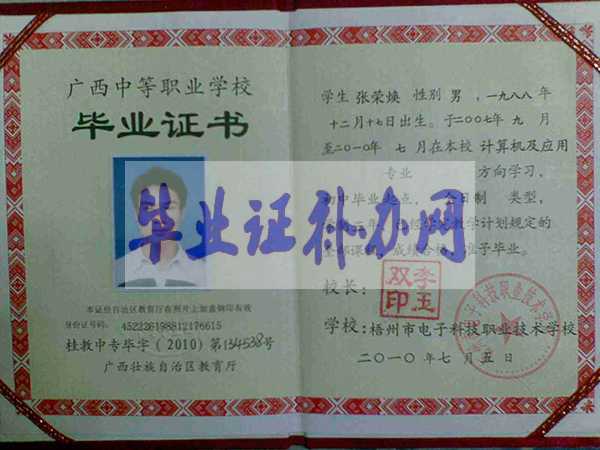 广西中等职业学校
毕业证书
毕业证补办网
本证经自治区教育厅在照片上加盖钢印有效
身份证号码: 452226198812176615
桂教中专毕字(2010)第134538号
广西壮族自治区教育厅
学生 张荣焕 性别 男 , 一九八八年
十二月十七日出生。于二〇〇七年 九 月
至二〇一〇年 七 月在本校 计算机及应用
专业 方向学习,
初中毕业起点, 全日制 类型,
学计划规定的
成绩合格,准予毕业。
校长:
李玉双印
学校:梧州市电子科技职业技术学校
二〇一〇年 七 月 五 日